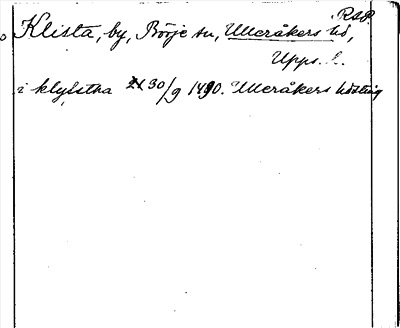 RAP.
Klista, by, Börje sn, Ulleråkers hd,
Upps. l.
i klysstha 30/9 1490. Ulleråkers häradsting